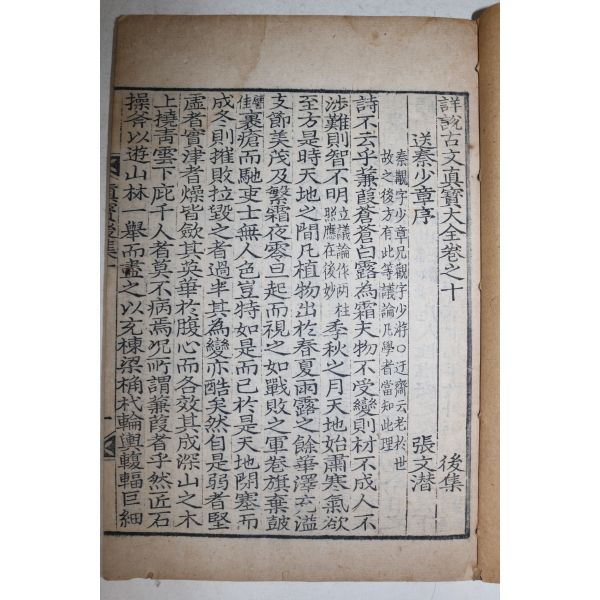 詳說古文眞寶大全卷之十 後集
送秦少章序 張文潛
秦覯字少章兄觀字少游○迂齋云老於世
故之後方有此等議論凡學者當知此理
詩不云乎蒹葭蒼蒼白露為霜夫物不受變則材不成人不
涉難則智不明立議論作兩柱照應在後妙季秋之月天地始肅寒氣欲
至方是時天地之間凡植物出於春夏雨露之餘華澤充溢
支節美茂及繁霜夜零旦起而視之如戰敗之軍卷旗棄鼓
譬佳裹瘡而馳吏士無人色豈特如是而已於是天地閉塞而
成冬則摧敗拉毀之者過半其為變亦酷矣然自是弱者堅
虛者實津者燥皆斂其英華於腹心而各效其成深山之木
上撓靑雲下庇千人者莫不病焉况所謂蒹葭者乎然匠石
操斧以遊山林一擧而盡之以充棟梁桷杙輪輿輹輻巨細
眞寶後集